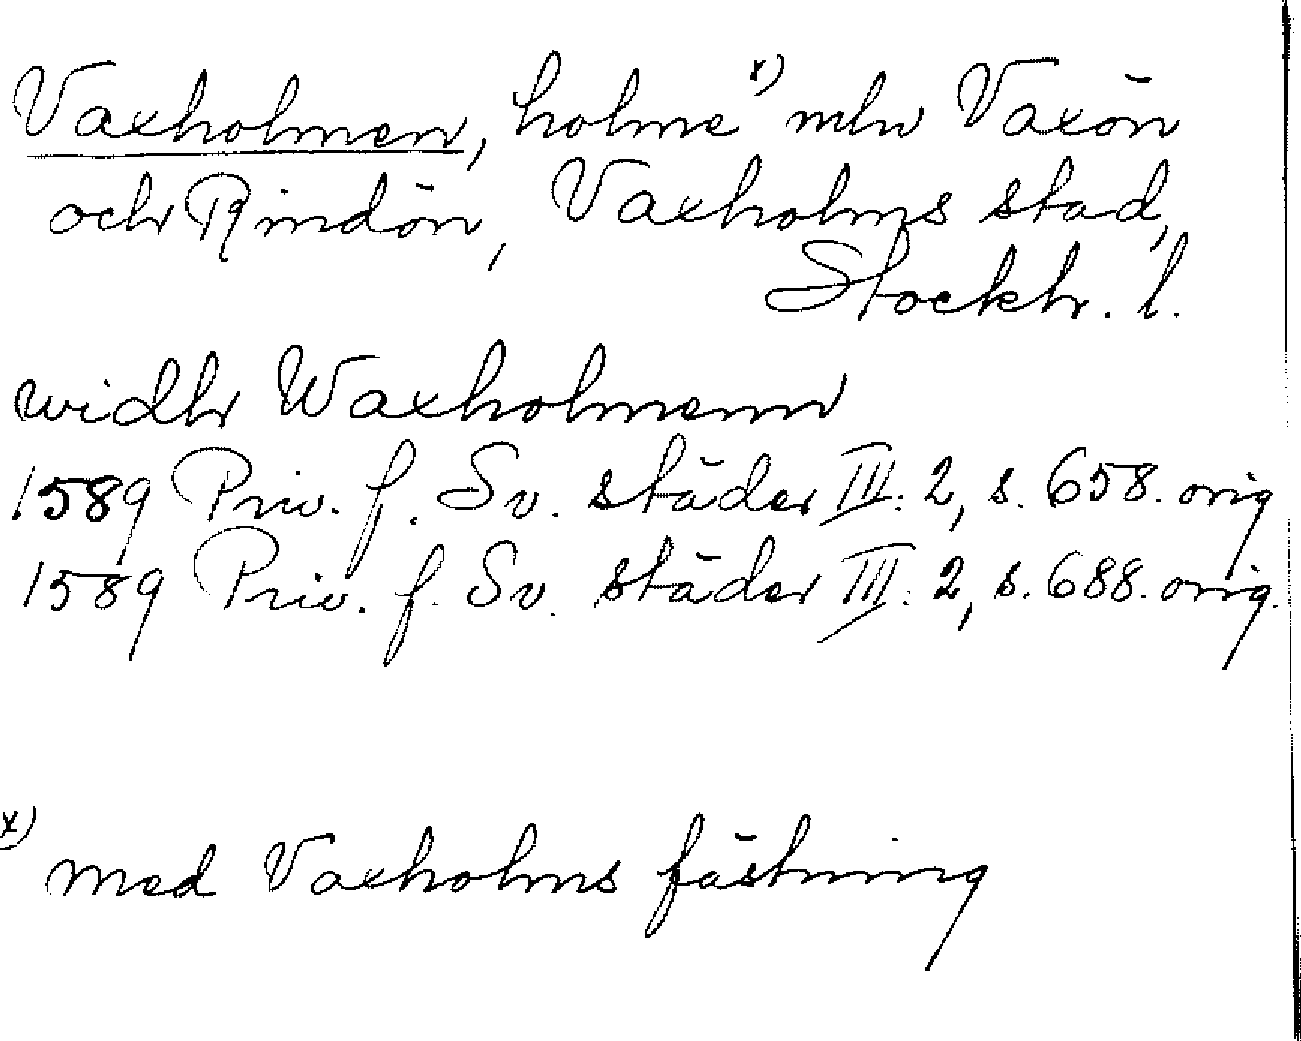 Vaxholmen, holme x) mln Vaxön
och Rindön, Vaxholms stad,
Stockh. l.
widh Waxholmenn
1589 Priv. f. Sv. städer III: 2, s. 658. orig
1589 Priv. f. Sv. städer III: 2, s. 688. orig.
x) med Vaxholms fästning